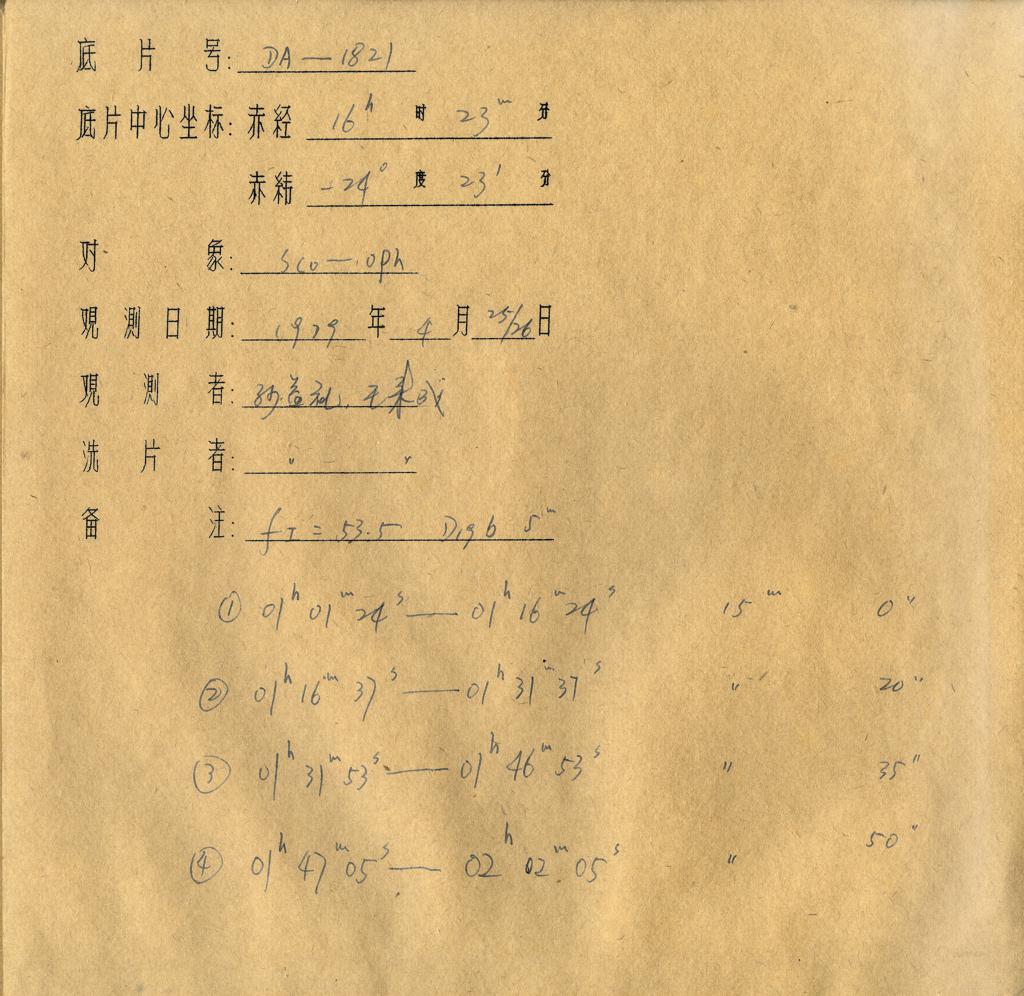 底片号: DA—1821
底片中心坐标: 赤经 16ʰ 时 23ᵐ 分
赤緯 -24° 度 23′ 分
对象: Sco—Oph
观測日期: 1979 年 4 月 25/26 日
观測者:
洗片者: 〃 — 〃
备注: fT = 53.5 D19b 5ᵐ
① 01ʰ 01ᵐ 24ˢ — 01ʰ 16ᵐ 24ˢ 15ᵐ 0″
② 01ʰ 16ᵐ 37ˢ — 01ʰ 31ᵐ 37ˢ 〃 20″
③ 01ʰ 31ᵐ 53ˢ — 01ʰ 46ᵐ 53ˢ 〃 35″
④ 01ʰ 47ᵐ 05ˢ — 02ʰ 02ᵐ 05ˢ 〃 50″